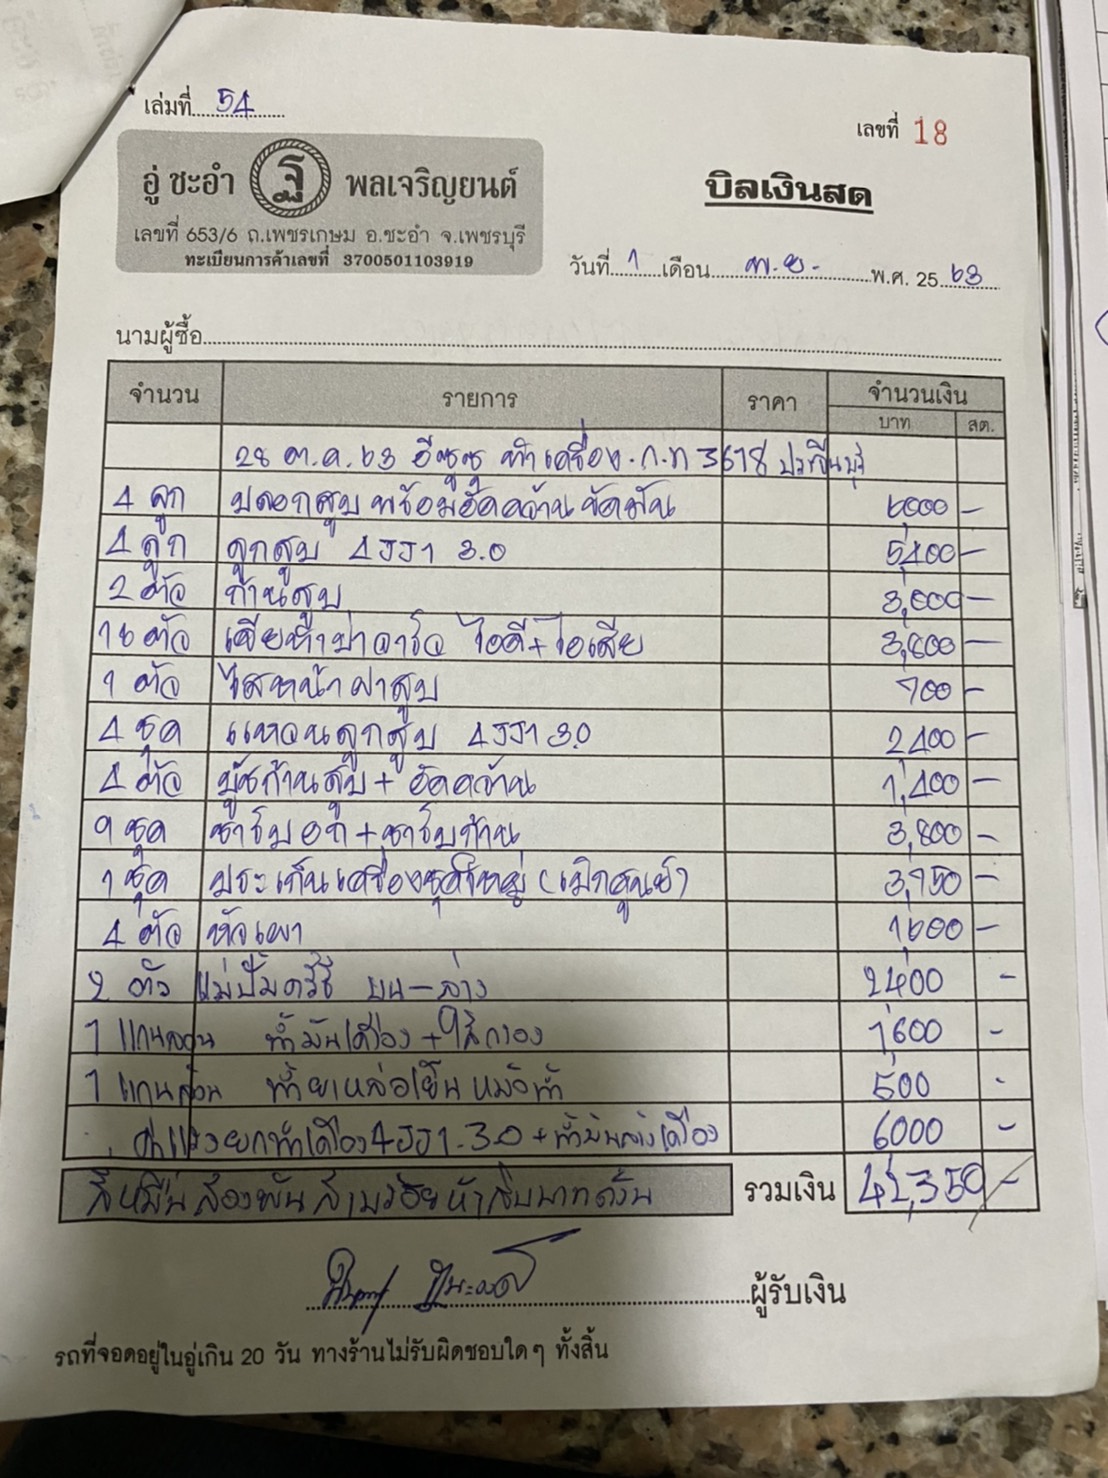 เล่มที่ 54
เลขที่ 18
อู่ ชะอำ ฐ พลเจริญยนต์
เลขที่ 653/6 ถ.เพชรเกษม อ.ชะอำ จ.เพชรบุรี
ทะเบียนการค้าเลขที่ 3700501103919
บิลเงินสด
วันที่ 1 เดือน พ.ย. พ.ศ. 25 63
นามผู้ซื้อ
จำนวน รายการ ราคา จำนวนเงิน
บาท สต.
28 ต.ค. 63 อีซูซุ ทำเครื่อง. ก.ท 3618 ปราจีนบุรี
4 ลูก ปลอกสูบ พร้อมอัดคว้าน ขัดมัน 6,000 -
4 ลูก ลูกสูบ 4JJ1 3.0 5,400 -
2 ตัว ก้านสูบ 3,000 -
16 ตัว ไอดี+ไอเสีย 3,800 -
1 ตัว ไสหน้าฝาสูบ 700 -
4 ชุด แหวนลูกสูบ 4JJ1 3.0 2,400 -
4 ตัว บู๊ชก้านสูบ + อัดคว้าน 1,400 -
1 ชุด ชาร์ปอก + ชาร์ปก้าน 3,800 -
1 ชุด ประเก็นเครื่องชุดใหญ่ (เบิกศูนย์) 3,750 -
4 ตัว หัวเผา 1,600 -
2 ตัว แม่ปั๊มครัช บน - ล่าง 2400 -
1 แกนลอน น้ำมันเครื่อง + ไส้กรอง 1,600 -
1 แกนลอน น้ำยาหล่อเย็นหม้อน้ำ 500 -
ค่าแรงยกทำเครื่อง 4JJ1-3.0 + น้ำมันล้างเครื่อง 6000 -
สี่หมื่นสองพันสามร้อยห้าสิบบาทถ้วน รวมเงิน 42,350 -
ผู้รับเงิน
รถที่จอดอยู่ในอู่เกิน 20 วัน ทางร้านไม่รับผิดชอบใดๆ ทั้งสิ้น